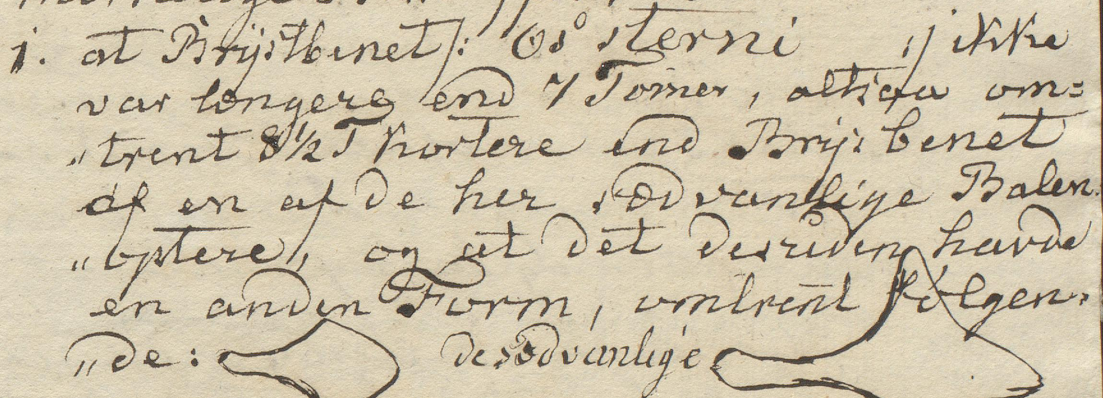 1. at Brystbenet /: Os sterni :/ ikke
var længere end 7 Tomer, altsaa om=
„trent 8½ T kortere end Brystbenet
af en af de her sædvanlige Balen=
„optere, og at det desuden havde
en anden Form, omtrent følgen=
„de: de sædvanlige